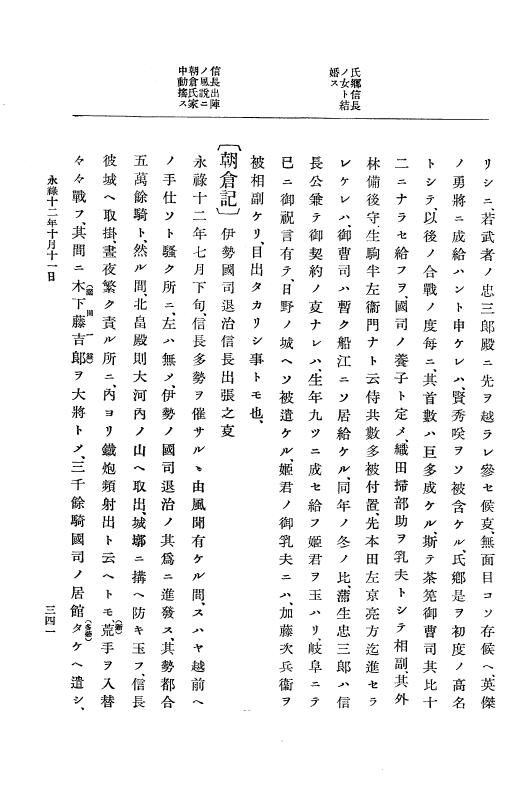 氏鄕信長
ノ女ト結
婚ス
信長出陣
ノ風說ニ
朝倉氏家
中動搖ス
リシニ、若武者ノ忠三郎殿ニ先ヲ越ラレ參セ候㕝、無面目コソ存候ヘ、英傑
ノ勇將ニ成給ハント申ケレハ、賢秀咲ヲソ被含ケル、氏鄕是ヲ初度ノ高名
トシテ、以後ノ合戰ノ度每ニ、其首數ハ巨多成ケル、斯テ茶筅御曹司其比十
二ニナラセ給フヲ、國司ノ養子ト定メ、織田掃部助ヲ乳夫トシテ相副、其外
林備後守、生駒半左衞門ナト云侍共數多被付置、先本田左京亮方迄進セラ
レケレハ、御曹司ハ暫ク船江ニソ居給ケル、同年ノ冬ノ比、蒲生忠三郎ハ信
長公兼テ御契約ノ㕝ナレハ、生年九ツニ成セ給フ姬君ヲ玉ハリ、岐阜ニテ
已ニ御祝言有テ、日野ノ城ヘソ被遣ケル、姬君ノ御乳夫ニハ、加藤次兵衞ヲ
被相副ケリ、目出タカリシ事トモ也、
〔朝倉記〕 伊勢國司退治信長出張之㕝
永祿十二年七月下旬、信長多勢ヲ催サルヽ由風聞有ケル間、スハヤ越前ヘ
ノ手仕ソト騷ク所ニ、左ハ無メ、伊勢ノ國司退治ノ其爲ニ進發ス、其勢都合
五萬餘騎ト、然ル間、北畠殿則大河內ノ山ヘ取出、城墎ニ搆ヘ防キ玉フ、信長
彼城ヘ取掛、晝夜繁ク責ル所ニ、內ヨリ鐵炮頻射出ト云ヘトモ、荒(新)手ヲ入替
々々戰フ、其間ニ木下藤吉郎ヲ大將トメ、三千餘騎國司ノ居館タケ(多藝)ヘ遣シ、
永祿十二年十月十一日
三四一